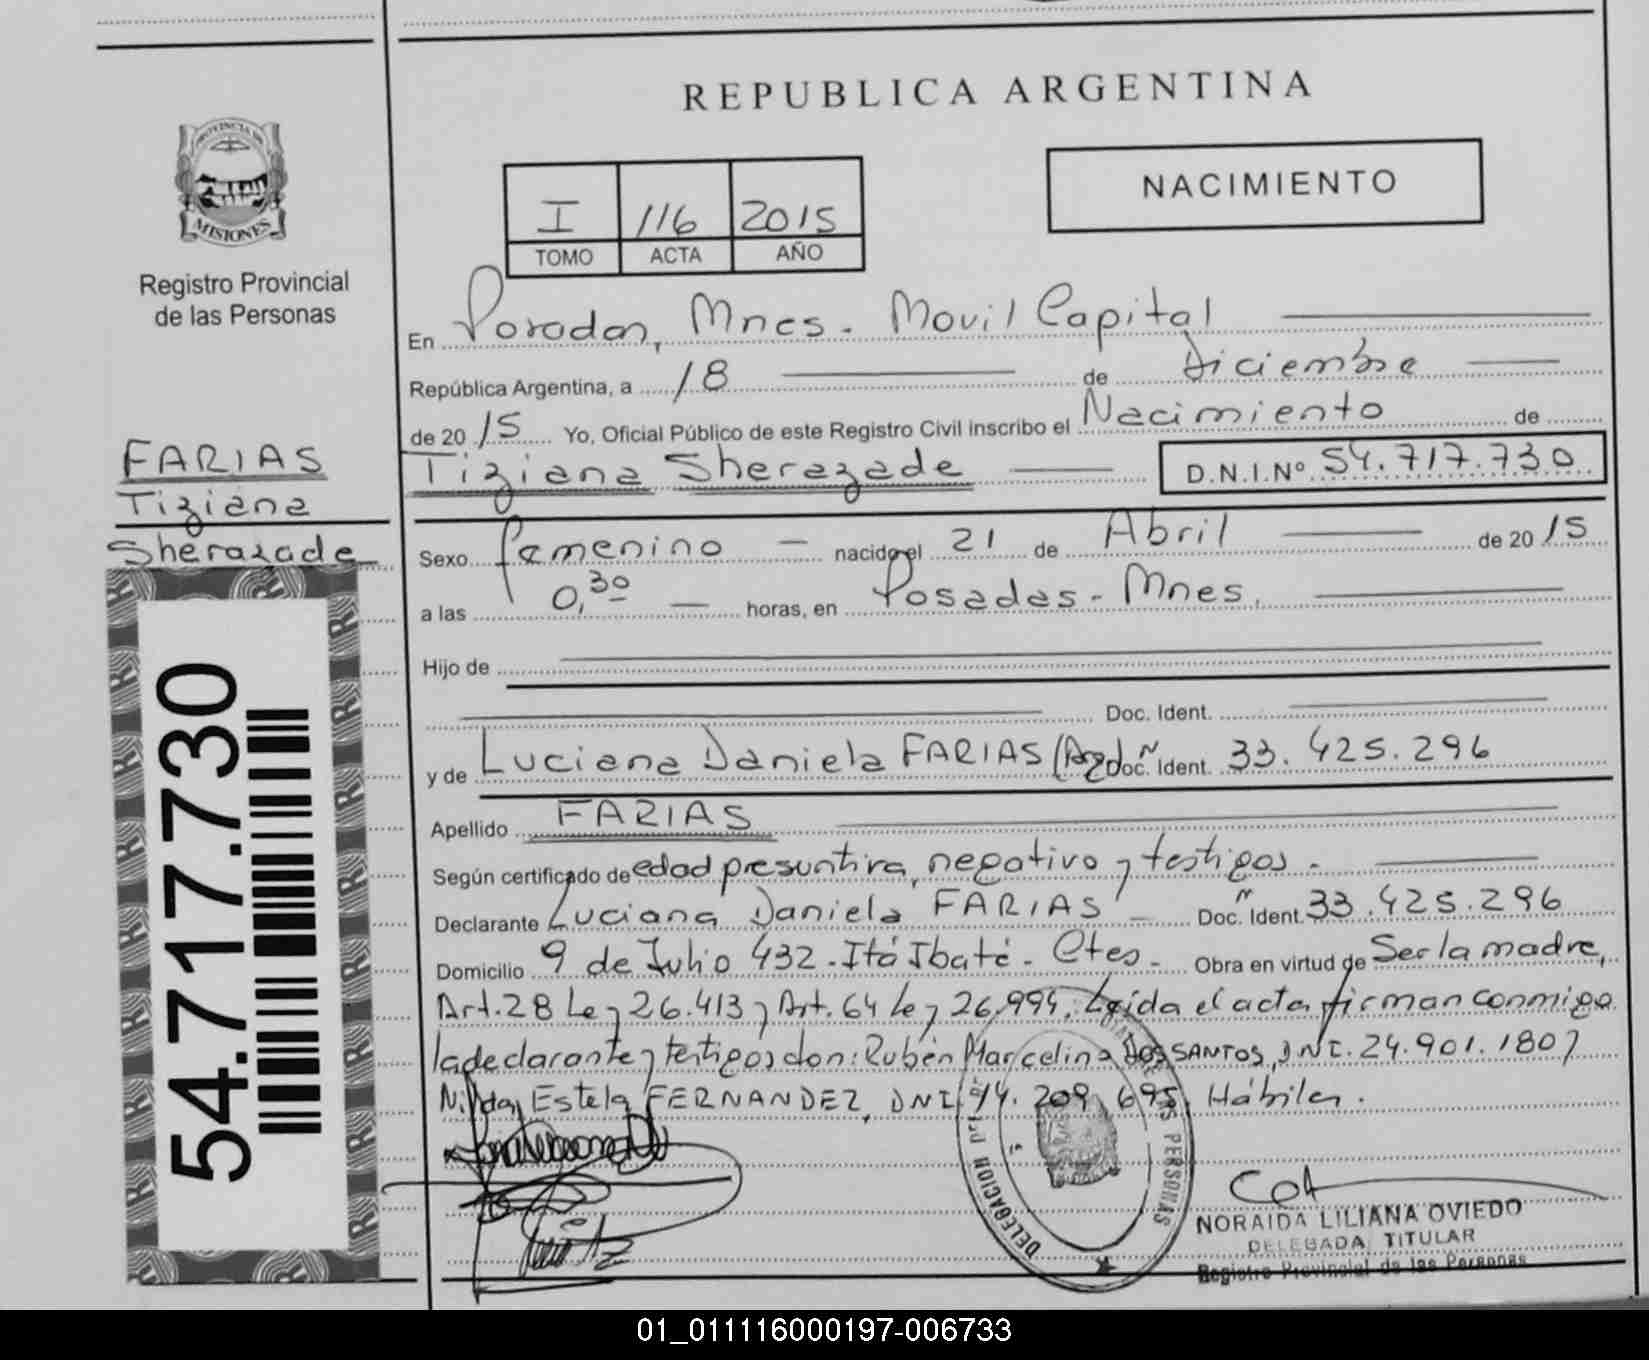 REPUBLICA ARGENTINA
PROVINCIA DE
MISIONES
Registro Provincial
de las Personas
NACIMIENTO
I 116 2015
TOMO ACTA AÑO
En Posadas, Mnes. Movil Capital
República Argentina, a 18 de Diciembre
de 20 15 Yo, Oficial Público de este Registro Civil inscribo el Nacimiento de
Tiziana Sherazade D.N.I.Nº 54.717.730
FARIAS
Tiziana
Sherazade
54.717.730
Sexo femenino nacido el 21 de Abril de 20 15
a las 0,30 horas, en Posadas - Mnes.
Hijo de
Doc. Ident.
y de Luciana Daniela FARIAS (Arg) Doc. Ident. 33.425.296
Apellido FARIAS
Según certificado de edad presuntiva, negativo y testigos.
Declarante Luciana Daniela FARIAS Doc. Ident. 33.425.296
Domicilio 9 de Julio 432 - Itá Ibaté - Ctes - Obra en virtud de Ser la madre,
Art. 28 Ley 26.413 y Art. 64 Ley 26.994. Leída el acta firman conmigo
la declarante y testigos don: Rubén Marcelino DOS SANTOS, DNI. 24.901.180 y
Nilda Estela FERNANDEZ, DNI. 14.209.695. Hábiles.
DELEGACION
PERSONAS
NORAIDA LILIANA OVIEDO
DELEGADA TITULAR
Registro Provincial de las Personas
01_011116000197-006733